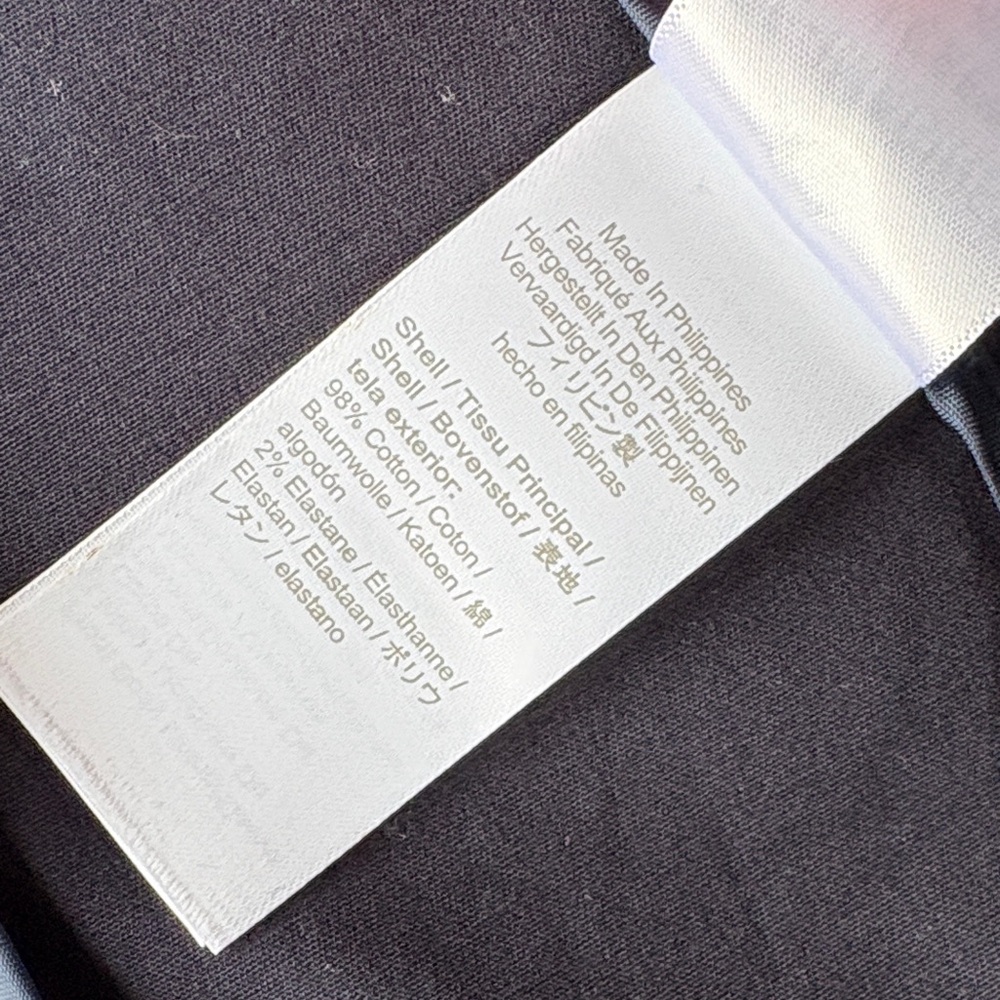 Made In Philippines
Fabriqué Aux Philippines
Hergestellt In Den Philippinen
Vervaardigd In De Filippijnen
フィリピン製
hecho en filipinas
Shell / Tissu Principal /
Shell / Bovenstof / 表地 /
tela exterior:
98% Cotton / Coton /
Baumwolle / Katoen / 綿 /
algodón
2% Elastane / Élasthanne /
Elastan / Elastaan / ポリウ
レタン / elastano